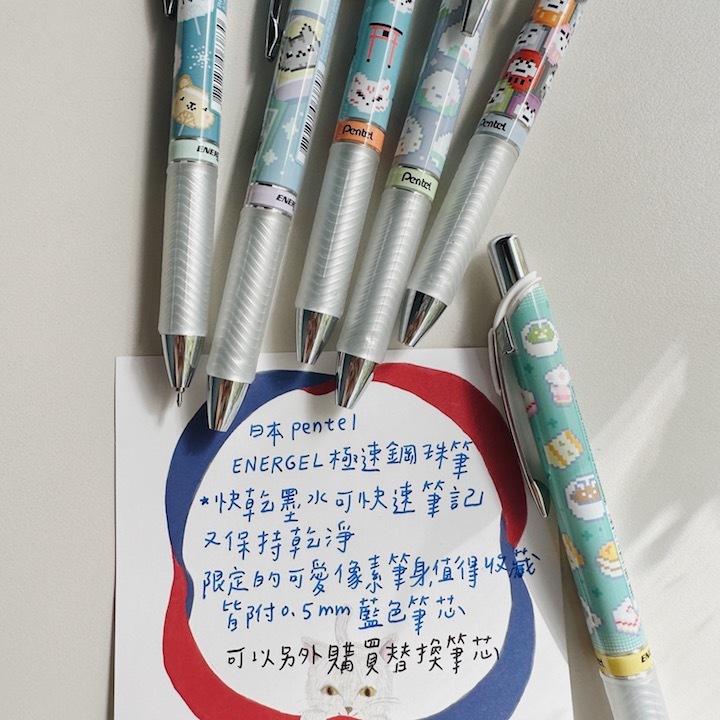 ENERG
ENERG
Pentel
Pentel
Pentel
日本 pentel
ENERGEL 極速鋼珠筆
*快乾墨水可快速筆記
又保持乾淨
限定的可愛像素筆身,值得收藏
皆附0.5mm 藍色筆芯
可以另外購買替換筆芯